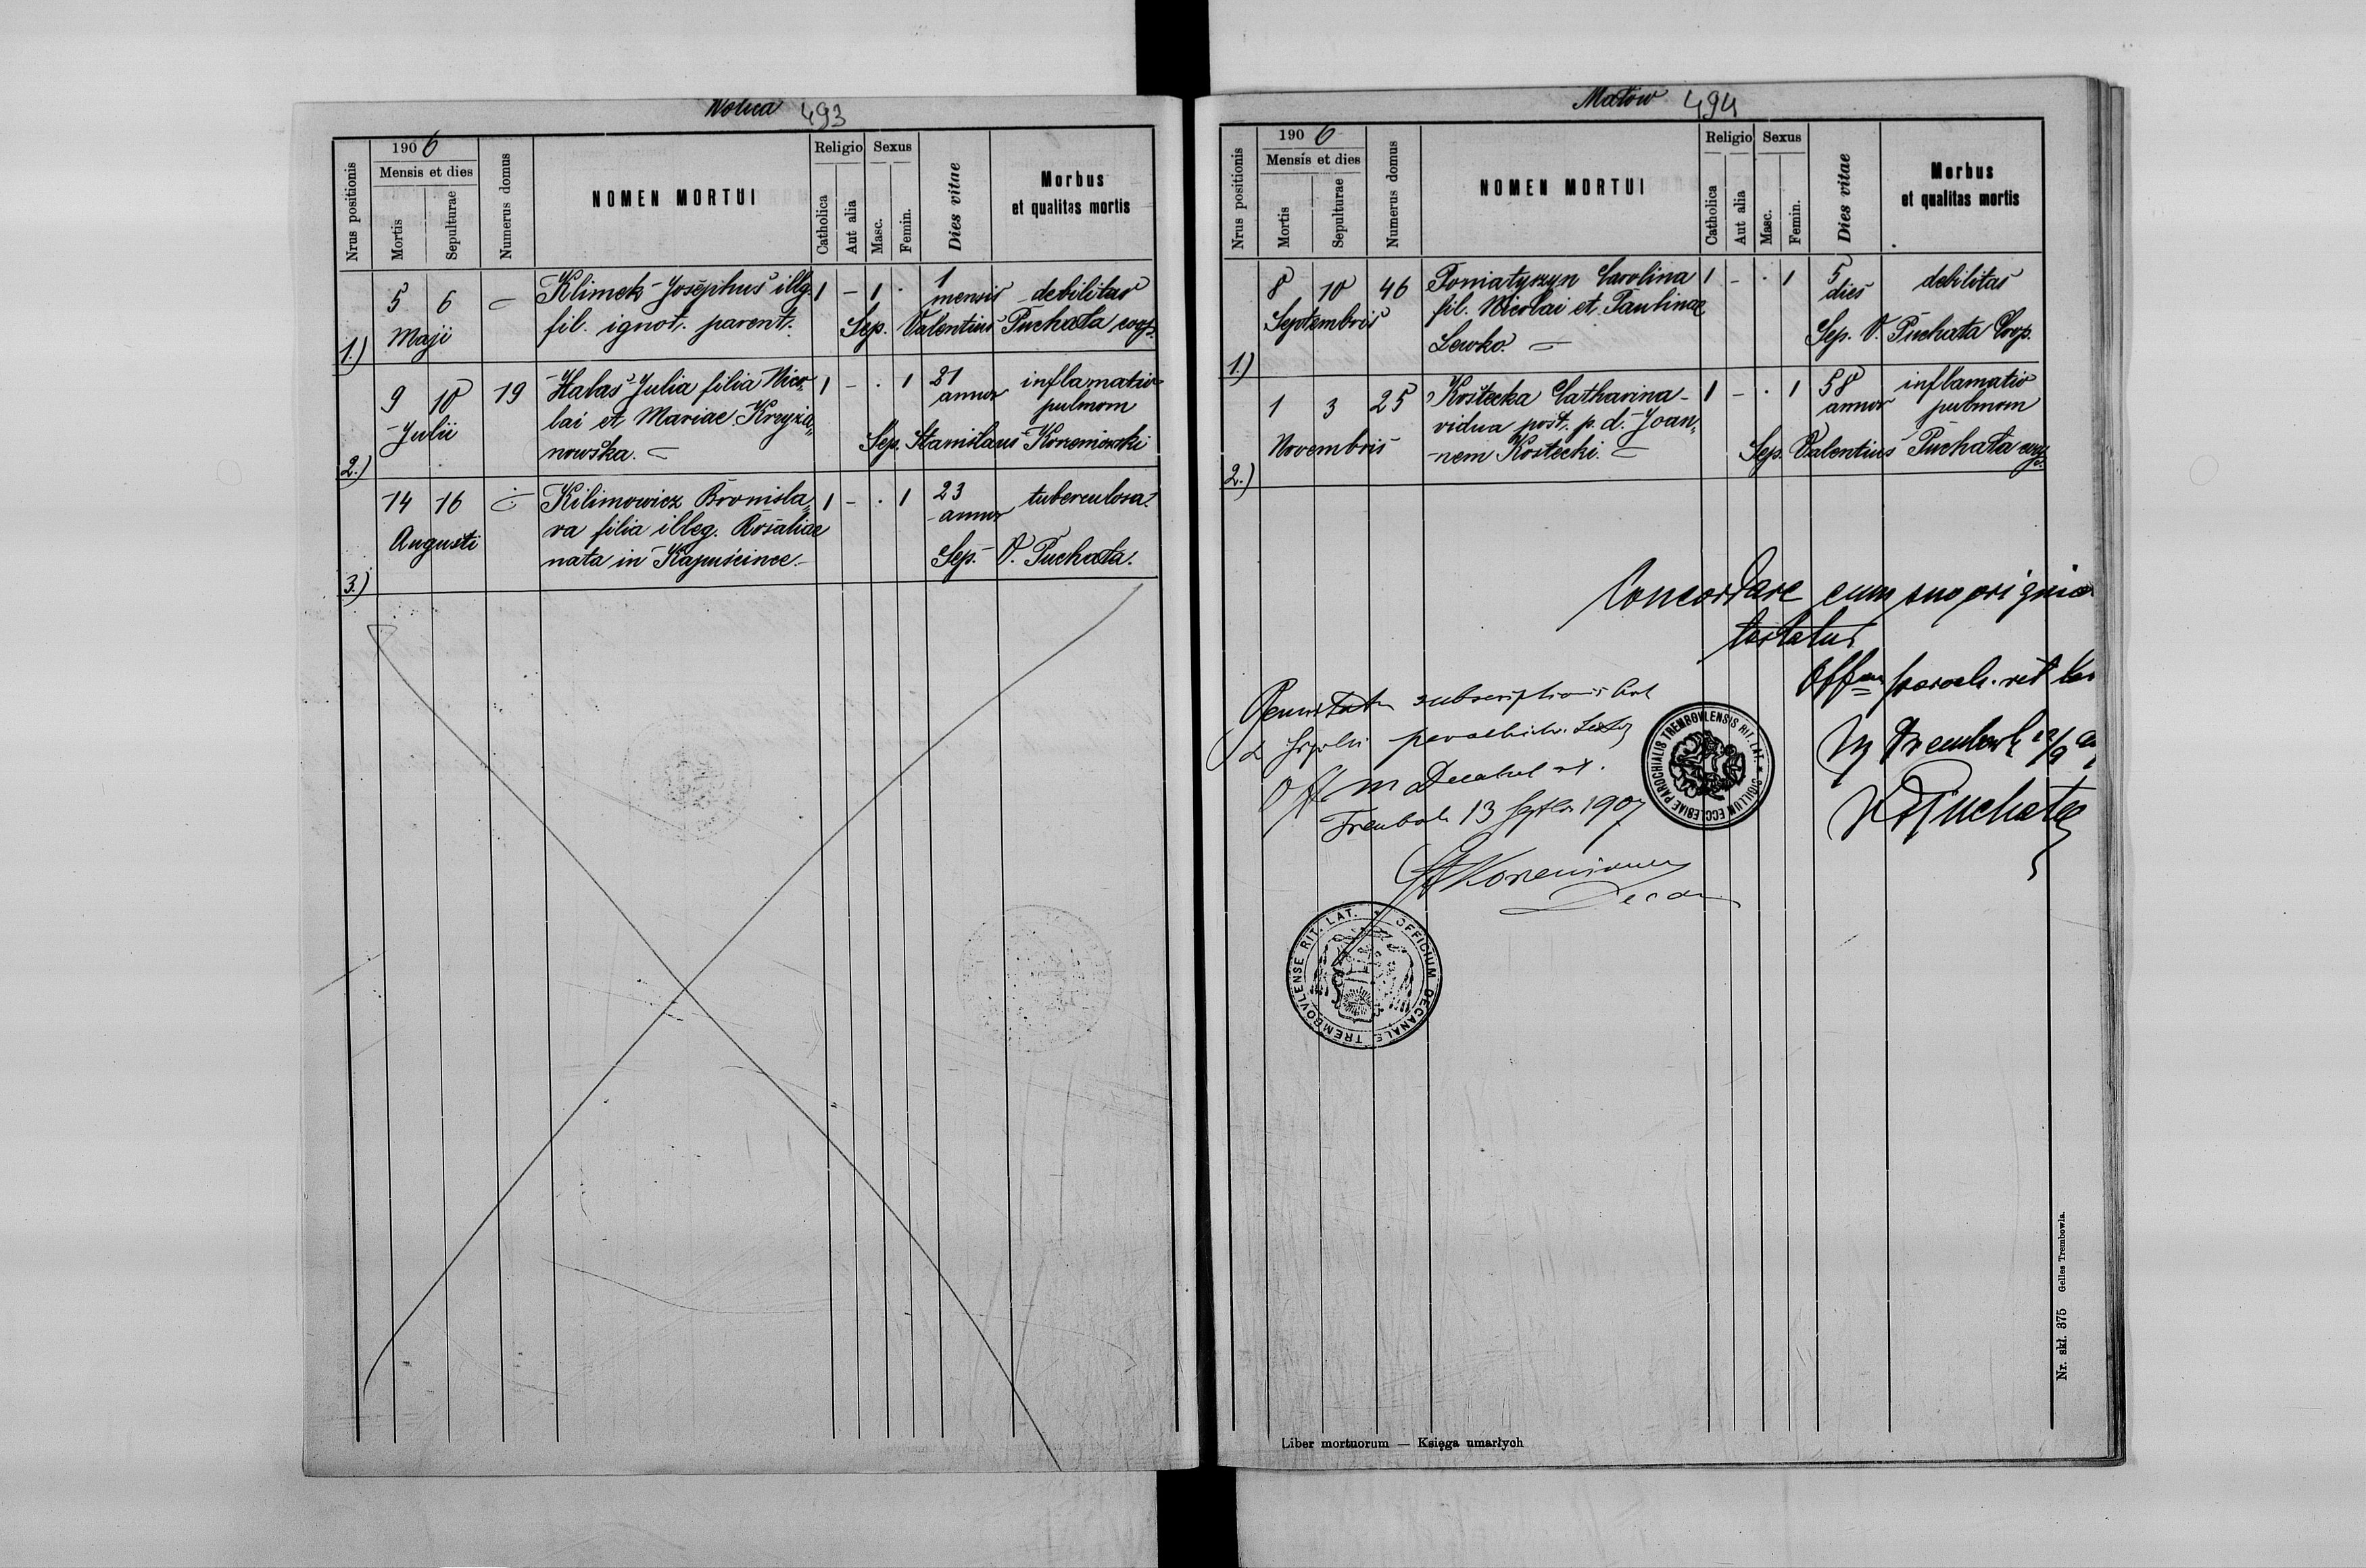 Wolica 493
Nrus positionis
1906
Mensis et dies
Mortis
Sepulturae
Numerus domus
NOMEN MORTUI
Religio
Catholica
Aut alia
Sexus
Masc.
Femin.
Dies vitae
Morbus
et qualitas mortis
5 6 Klimek Josephus illg. 1 - 1 . 1 mensis debilitas
Maji fil. ignot. parent. Sep. Valentius Puchała coop.
1.)
9 10 19 Hałas Julia filia Nico- 1 - . 1 21 annor inflamatio
Julii lai et Mariae Krzyża„ pulmom
nowska. Sep. Stanislaus Korzeniowski
2.)
14 16 Kilimowicz Bronisla„ 1 - . 1 23 annor tuberculosa
Augusti va filia illeg. Rosaliae
nata in Kapuścince. Sep. V. Puchała.
3.)
Małów 494
Nrus positionis
1906
Mensis et dies
Mortis
Sepulturae
Numerus domus
NOMEN MORTUI
Religio
Catholica
Aut alia
Sexus
Masc.
Femin.
Dies vitae
Morbus
et qualitas mortis
8 10 46 Poniatyszyn Carolina 1 - . 1 5 dies debilitas
Septembris fil. Nicolai et Paulinae
Lewko. Sep. V. Puchała Coop.
1.)
1 3 25 Kostecka Catharina 1 - . 1 58 annor inflamatio
vidua post. p. d. Joan„ pulmom
Novembris nem Kostecki. Sep. Valentius Puchała coop.
2.)
Concordare cum suo origi
testatur
Off paroch. rit
V Puchała
subscriptionis
Off
13 1907
Decan
SIGILLUM ECCLESIAE PAROCHIALIS TREMBOVLENSIS RIT. LAT.
OFFICIUM DECANALE TREMBOVLENSE RIT. LAT.
Liber mortuorum — Księga umarłych
Nr. skł. 375 Gelles Trembowla.